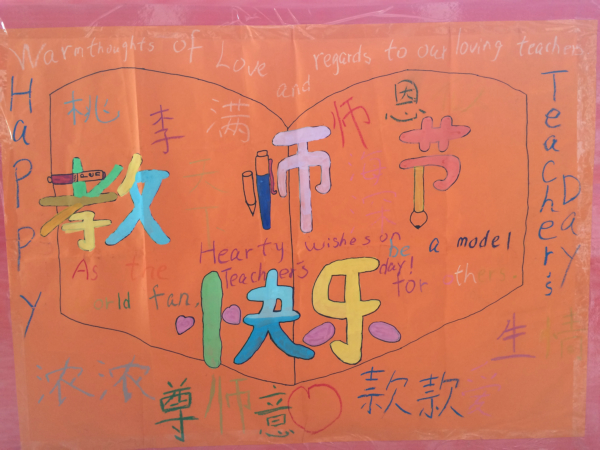 Warm thoughts of Love and regards to our loving teachers
Happy
Teacher's Day
桃李满
师恩
教师节
Hearty wishes on
Teacher's day!
As the
be a model
for others.
快乐
浓浓
尊师意
款款
生情